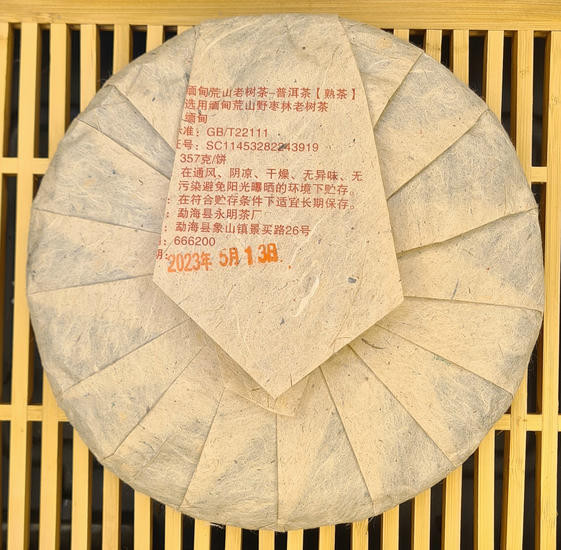 缅甸荒山老树茶-普洱茶【熟茶】
选用缅甸荒山野枣林老树茶
缅甸
准: GB/T22111
号: SC11453282243919
357克/饼
在通风、阴凉、干燥、无异味、无
污染避免阳光曝晒的环境下贮存。
: 在符合贮存条件下适宜长期保存。
: 勐海县永明茶厂
: 勐海县象山镇景买路26号
: 666200
: 2023年 5月 13日